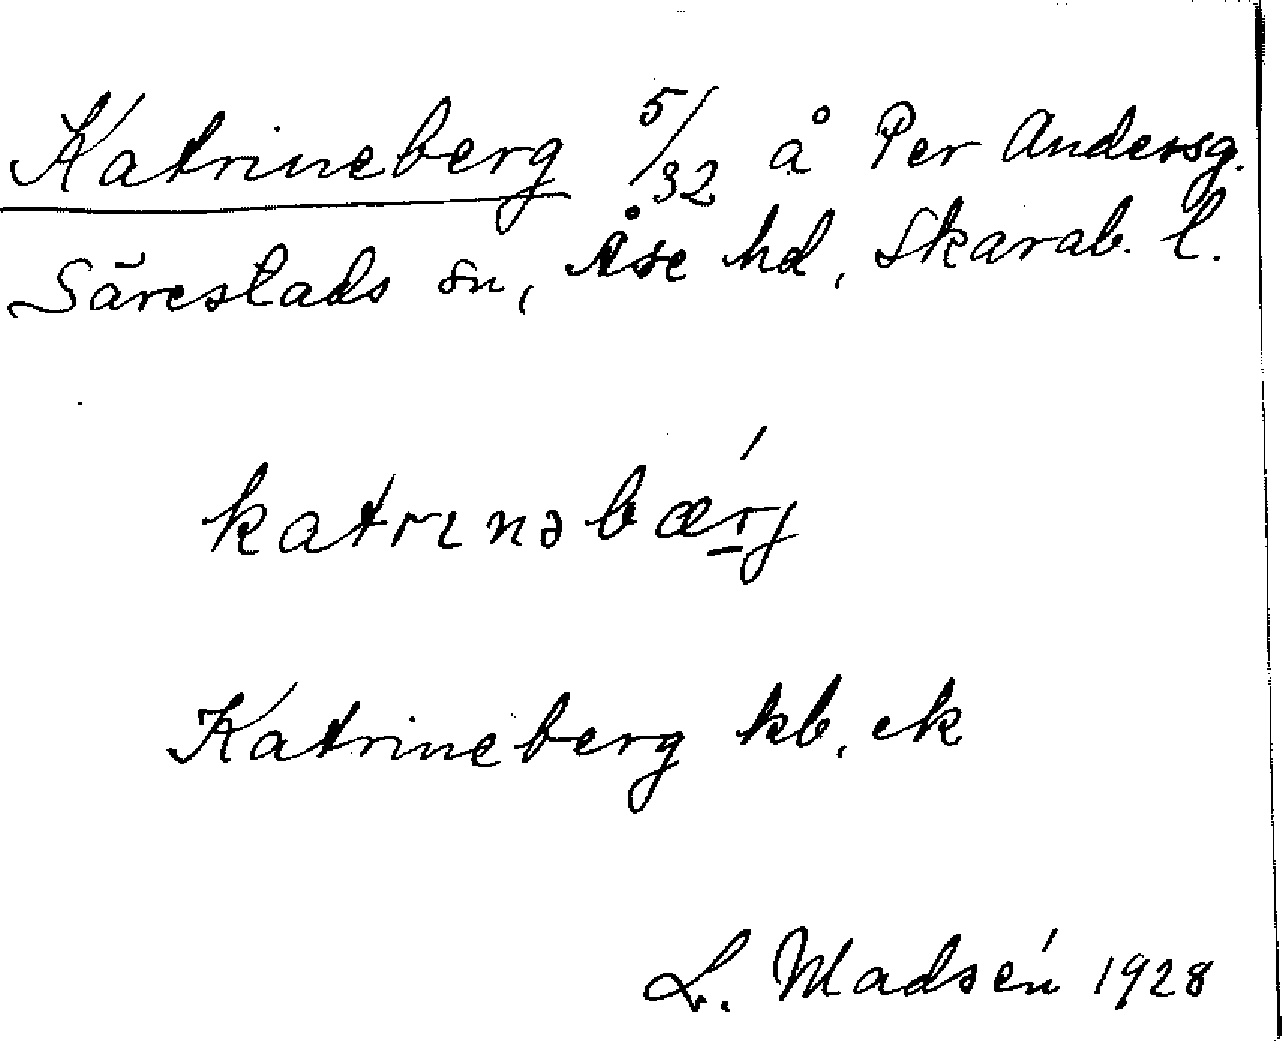 Katrineberg 5/32 å Per Andersg.
Särestads sn, Åse hd, Skarab. l.
katrɩnəbæŕ̲j
Katrineberg kb. ek
L. Madsén 1928